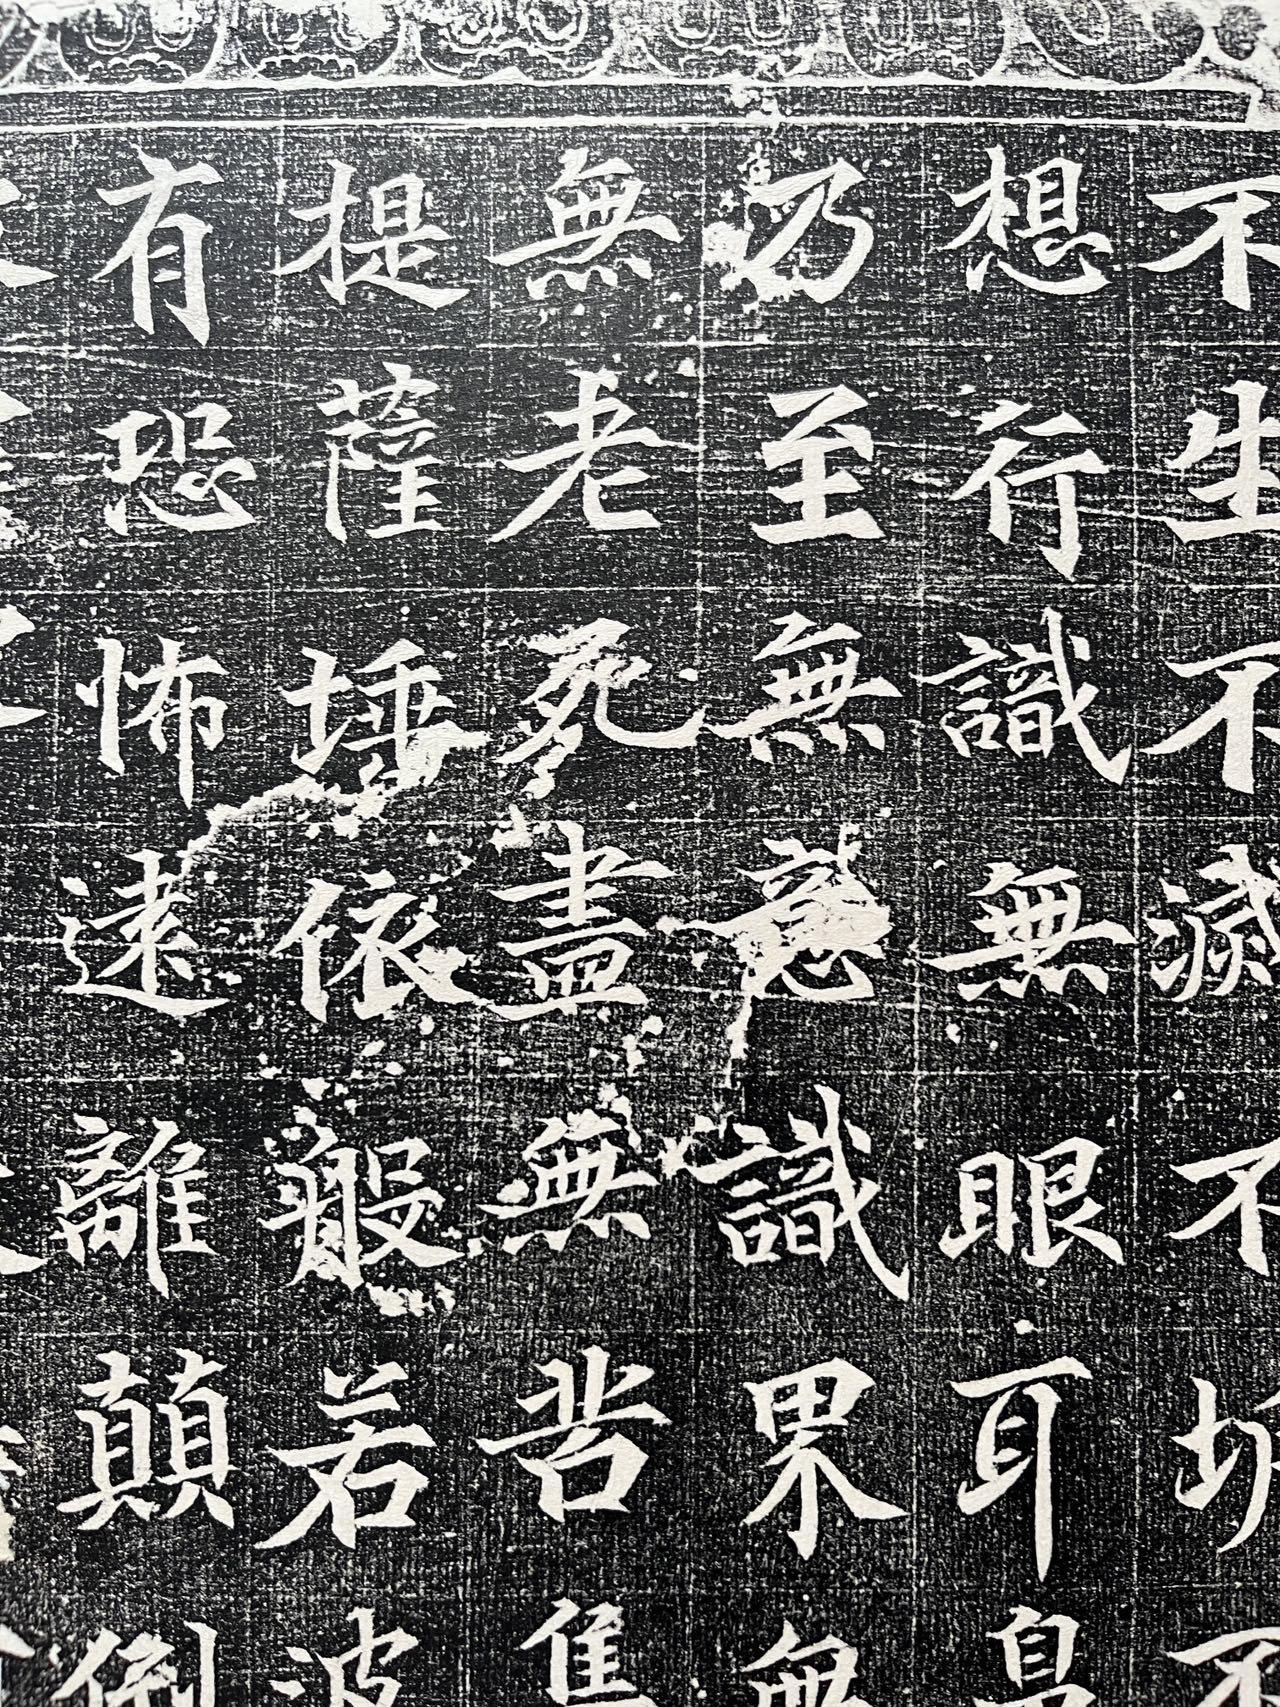 不生不滅不垢不
想行識無眼耳鼻
乃至無意識界無
無老死盡無苦集
提薩埵依般若波
有恐怖遠離顛倒